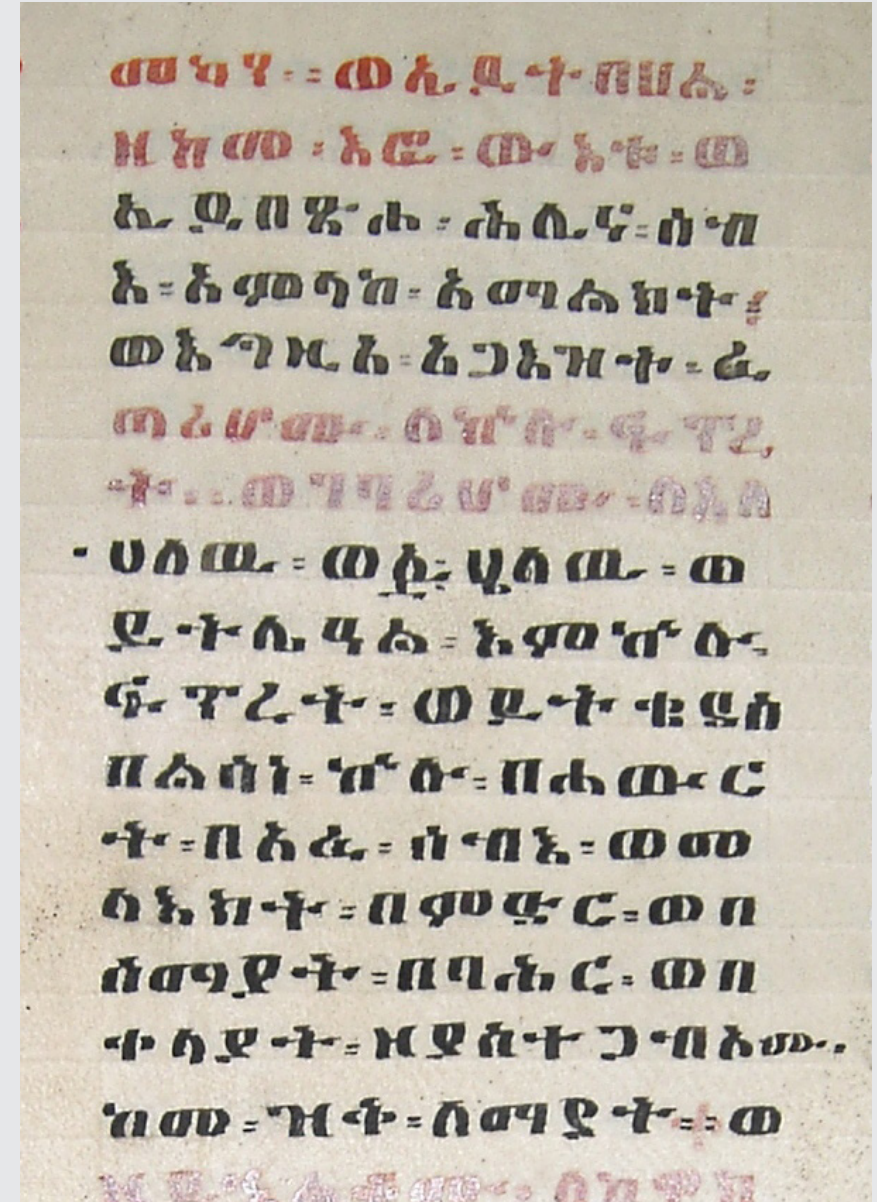 መኑሂ ። ወኢይትበሀል ።
ዘከመ ። እፎ ። ውእቱ ። ወ
ኢይበጽሖ ። ሕሊና ። ሰብ
እ ። አምላከ ። አማልክት ።
ወእግዚአ ። አጋእዝት ። ፈ
ጣሪሆሙ ። ለኵሉ ። ፍጥረ
ት ። ወገባሪሆሙ ። ለእለ
ሀለዉ ። ወይሄልዉ ። ወ
ይትሌዓል ። እምኵሉ
ፍጥረት ። ወይትቄደስ
በልሳነ ። ኵሉ ። በሐውር
ት ። በአፈ ። ሰብእ ። ወመ
ላእክት ። በምድር ። ወበ
ሰማያት ። በባሕር ። ወበ
ቀላያት ። ዘያስተጋብኦሙ
ከመ ። ዝቅ ። ለማያት ። ወ